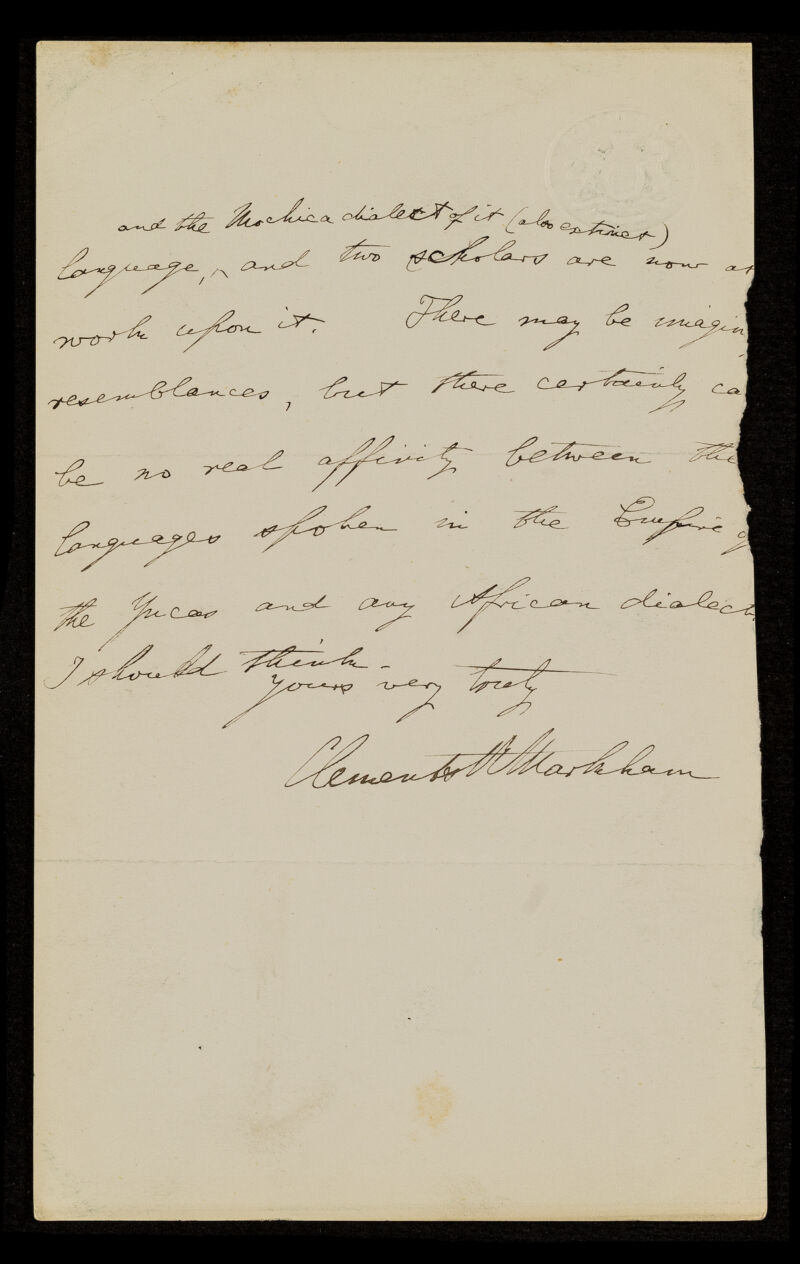 and the Mochica dialect of it (also extinct)
language, ^ and two scholars are now at
work upon it. There may be imagin
resemblances, but there certainly ca
be no real affinity between the
languages spoken in the Empire o
the Yncas and any African dialect
I should think.
Yours very truly
Clements R Markham